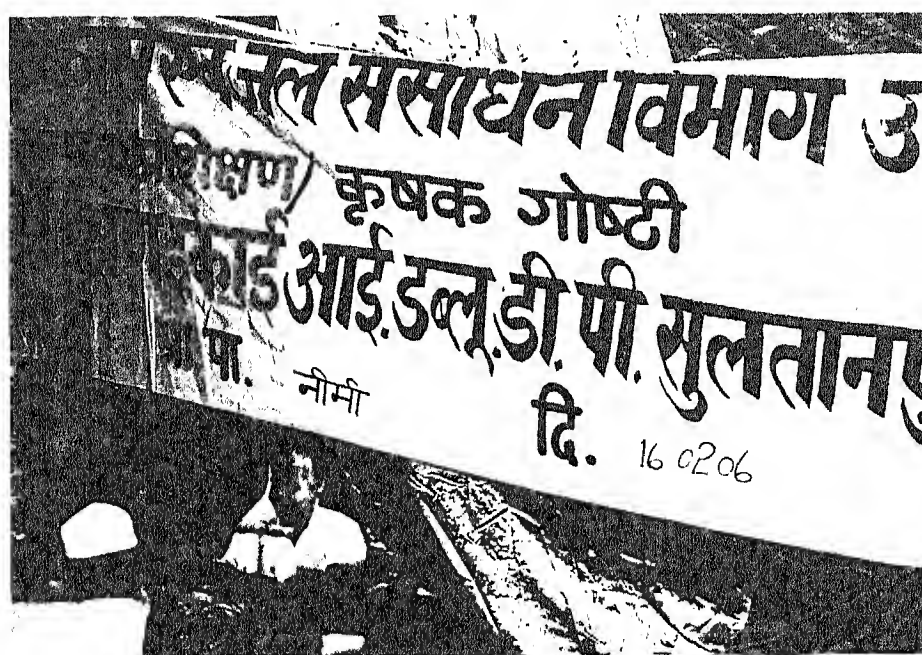 जल संसाधन विभाग उ
प्रशिक्षण/ कृषक गोष्टी
इकाई आई.डब्लू.डी.पी. सुलतानपु
पा. नीमी
दि. 16 02 06